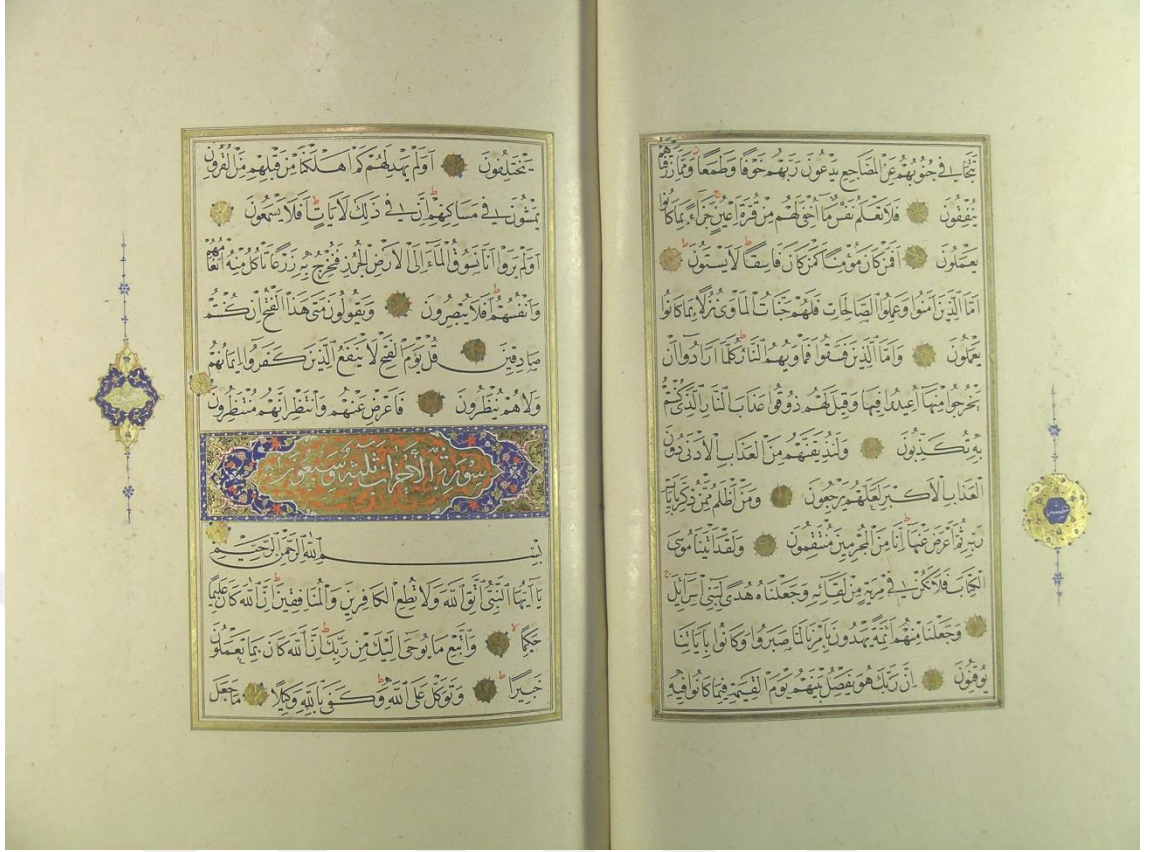 تتجافى جنوبهم عن المضاجع يدعون ربهم خوفا وطمعا ومما رزقناهم
ينفقون فلا تعلم نفس ما اخفى لهم من قرة اعين جزاء بما كانوا
يعملون افمن كان مؤمنا كمن كان فاسقا لا يستون
اما الذين امنوا وعملوا الصالحات فلهم جنات الماوى نزلا بما كانوا
يعملون واما الذين فسقوا فماويهم النار كلما ارادوا ان
يخرجوا منها اعيدوا فيها وقيل لهم ذوقوا عذاب النار الذى كنتم
به تكذبون ولنذيقنهم من العذاب الادنى دون
العذاب الاكبر لعلهم يرجعون ومن اظلم ممن ذكر بايات
ربه ثم اعرض عنها انا من المجرمين منتقمون ولقد اتينا موسى
الكتاب فلا تكن فى مرية من لقائه وجعلناه هدى لبنى اسرائل
وجعلنا منهم ائمة يهدون بامرنا لما صبروا وكانوا باياتنا
يوقنون ان ربك هو يفصل بينهم يوم القيمة فيما كانوا فيه
يختلفون اولم يهد لهم كم اهلكنا من قبلهم من القرون
يمشون فى مساكنهم ان فى ذلك لايات افلا يسمعون
اولم يروا انا نسوق الماء الى الارض الجرز فنخرج به زرعا تاكل منه انعامهم
وانفسهم افلا يبصرون ويقولون متى هذا الفتح ان كنتم
صادقين قل يوم الفتح لا ينفع الذين كفروا ايمانهم
ولا هم ينظرون فاعرض عنهم وانتظر انهم منتظرون
سورة الأحزاب ثلثة وسبعون اية
بسم الله الرحمن الرحيم
يا ايها النبى اتق الله ولا تطع الكافرين والمنافقين ان الله كان عليما
حكيما واتبع ما يوحى اليك من ربك ان الله كان بما تعملون
خبيرا وتوكل على الله وكفى بالله وكيلا ما جعل